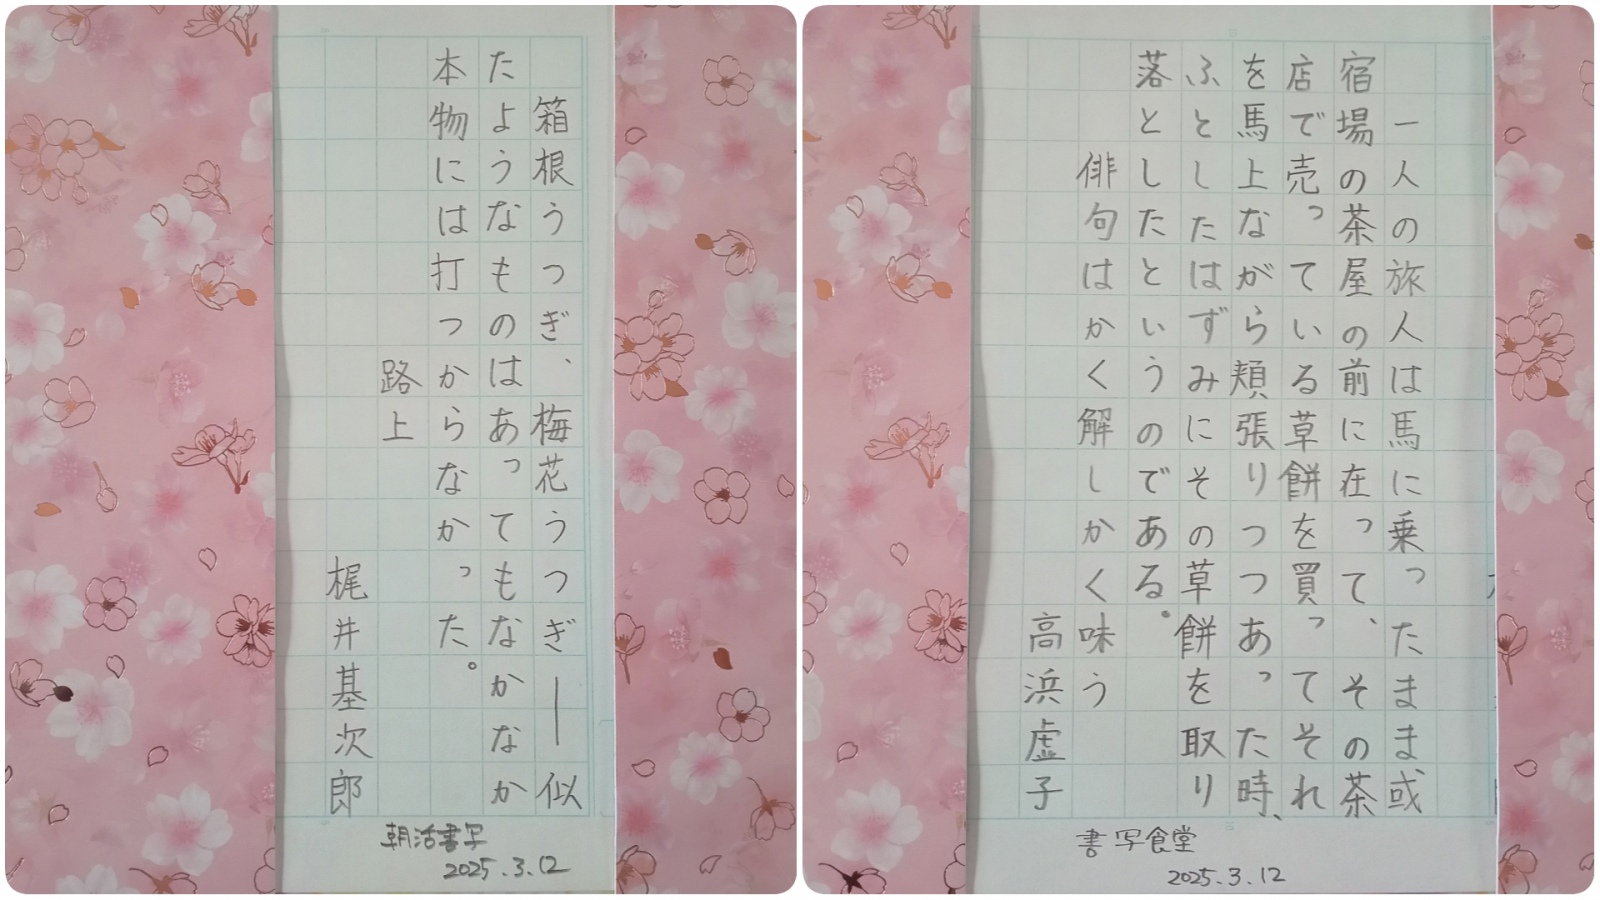 箱根うつぎ、梅花うつぎ――似
たようなものはあってもなかなか
本物には打つからなかった。
路上
梶井基次郎
朝活書写
2025.3.12
一人の旅人は馬に乗ったまま或
宿場の茶屋の前に在って、その茶
店で売っている草餅を買ってそれ
を馬上ながら頬張りつつあった時、
ふとしたはずみにその草餅を取り
落としたというのである。
俳句はかく解しかく味う
高浜虚子
書写食堂
2025.3.12